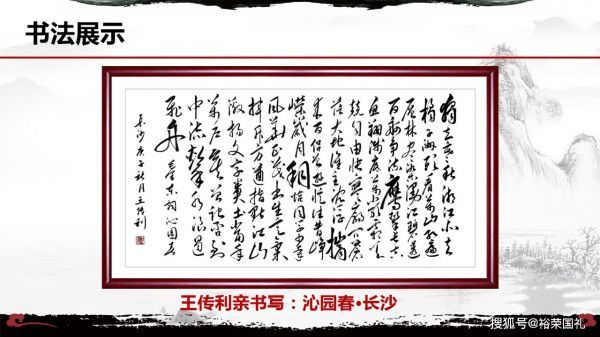 书法展示
独立寒秋湘江北去
橘子洲头看万山红遍
层林尽染漫江碧透
百舸争流鹰击长空
鱼翔浅底万类霜天
竞自由怅寥廓问苍
茫大地谁主沉浮携
来百侣曾游忆往昔峥
嵘岁月稠恰同学少年
风华正茂书生意气
挥斥方遒指点江山
激扬文字粪土当年
万户侯曾记否到
中流击水浪遏
飞舟 毛泽东词沁园春
长沙庚子秋月王传利
王传利亲书写：沁园春•长沙
搜狐号@裕荣国礼